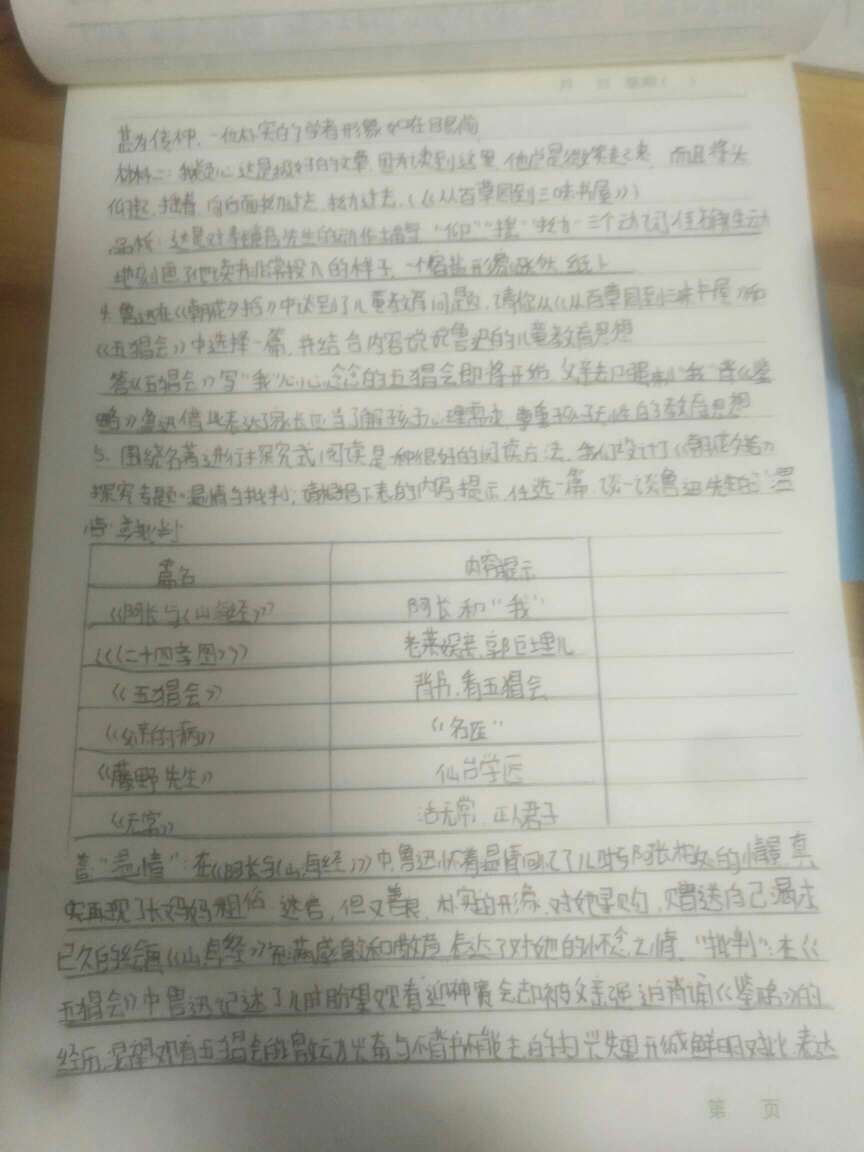 月 日 星期( )
甚为传神,一位朴实的学者形象如在目前
材料二:我疑心这是极好的文章,因为读到这里,他总是微笑起来,而且将头
仰起,摇着,向后面拗过去,拗过去。(《从百草园到三味书屋》)
品析:这是对寿镜吾先生的动作描写"仰""摇""拗"三个动词准确生动
地刻画了他读书非常投入的样子,一个形象跃然纸上
4.鲁迅在《朝花夕拾》中谈到了儿童教育问题,请你从《从百草园到三味书屋》和
《五猖会》中选择一篇,并结合内容说说鲁迅的儿童教育思想
答《五猖会》写"我"心心念念的五猖会即将开始,父亲却强制"我"背《鉴
略》鲁迅借此表达了家长应当了解孩子心理需求,尊重孩子天性的教育思想
5.围绕名著进行探究式阅读是一种很好的阅读方法,我们设计了《朝花夕拾》
探究专题:温情与批判,请根据下表的内容提示,任选一篇,谈一谈鲁迅先生的"温
情"与"批判"
篇名 内容提示
《阿长与《山海经》》 阿长和"我"
《《二十四孝图》》 老莱娱亲,郭巨埋儿
《五猖会》 背书,看五猖会
《父亲的病》 "名医"
《藤野先生》 仙台学医
《无常》 活无常,正人君子
答:"温情":在《阿长与《山海经》》中,鲁迅怀着温情回忆了儿时与阿长相处的情景,真
实再现了长妈妈粗俗、迷信,但又善良、朴实的形象,对她寻购、赠送自己渴求
已久的绘图《山海经》充满感激和敬意,表达了对她的怀念之情。"批判":在《
五猖会》中鲁迅记述了儿时盼望观看迎神赛会却被父亲强迫背诵《鉴略》的
经历,渴望观看五猖会的兴奋与不背书不能去的扫兴失望形成鲜明对比,表达
第 页